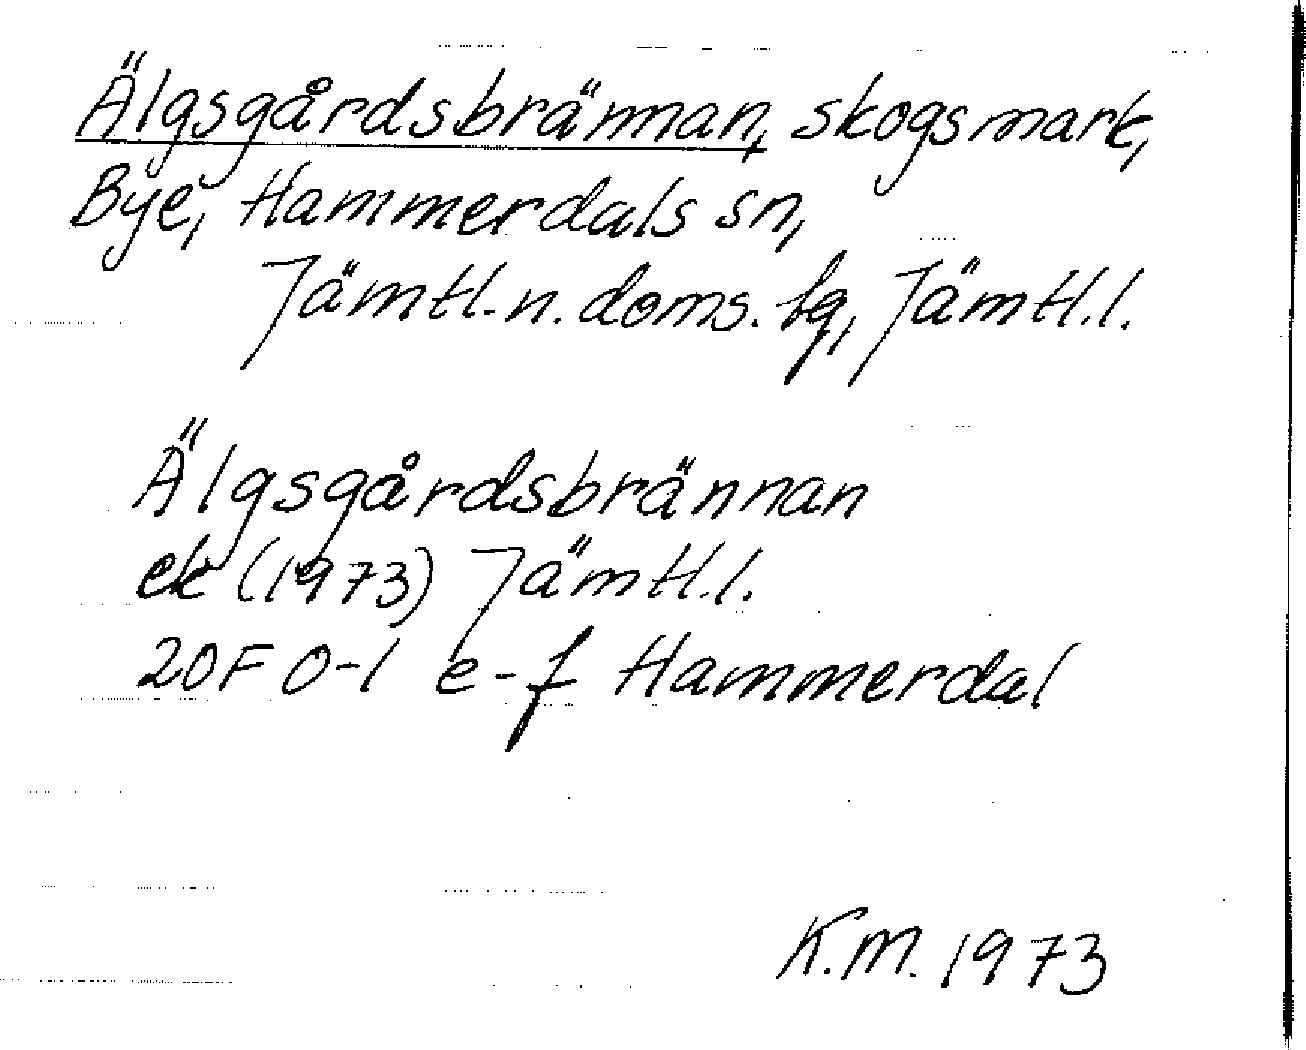 Älgsgårdsbrännan, skogsmark,
Bye, Hammerdals sn,
Jämtl. n. doms. fg, Jämtl.l.
Älgsgårdsbrännan
ek (1973) Jämtl.l.
20F 0-1 e-f Hammerdal
K.M. 1973